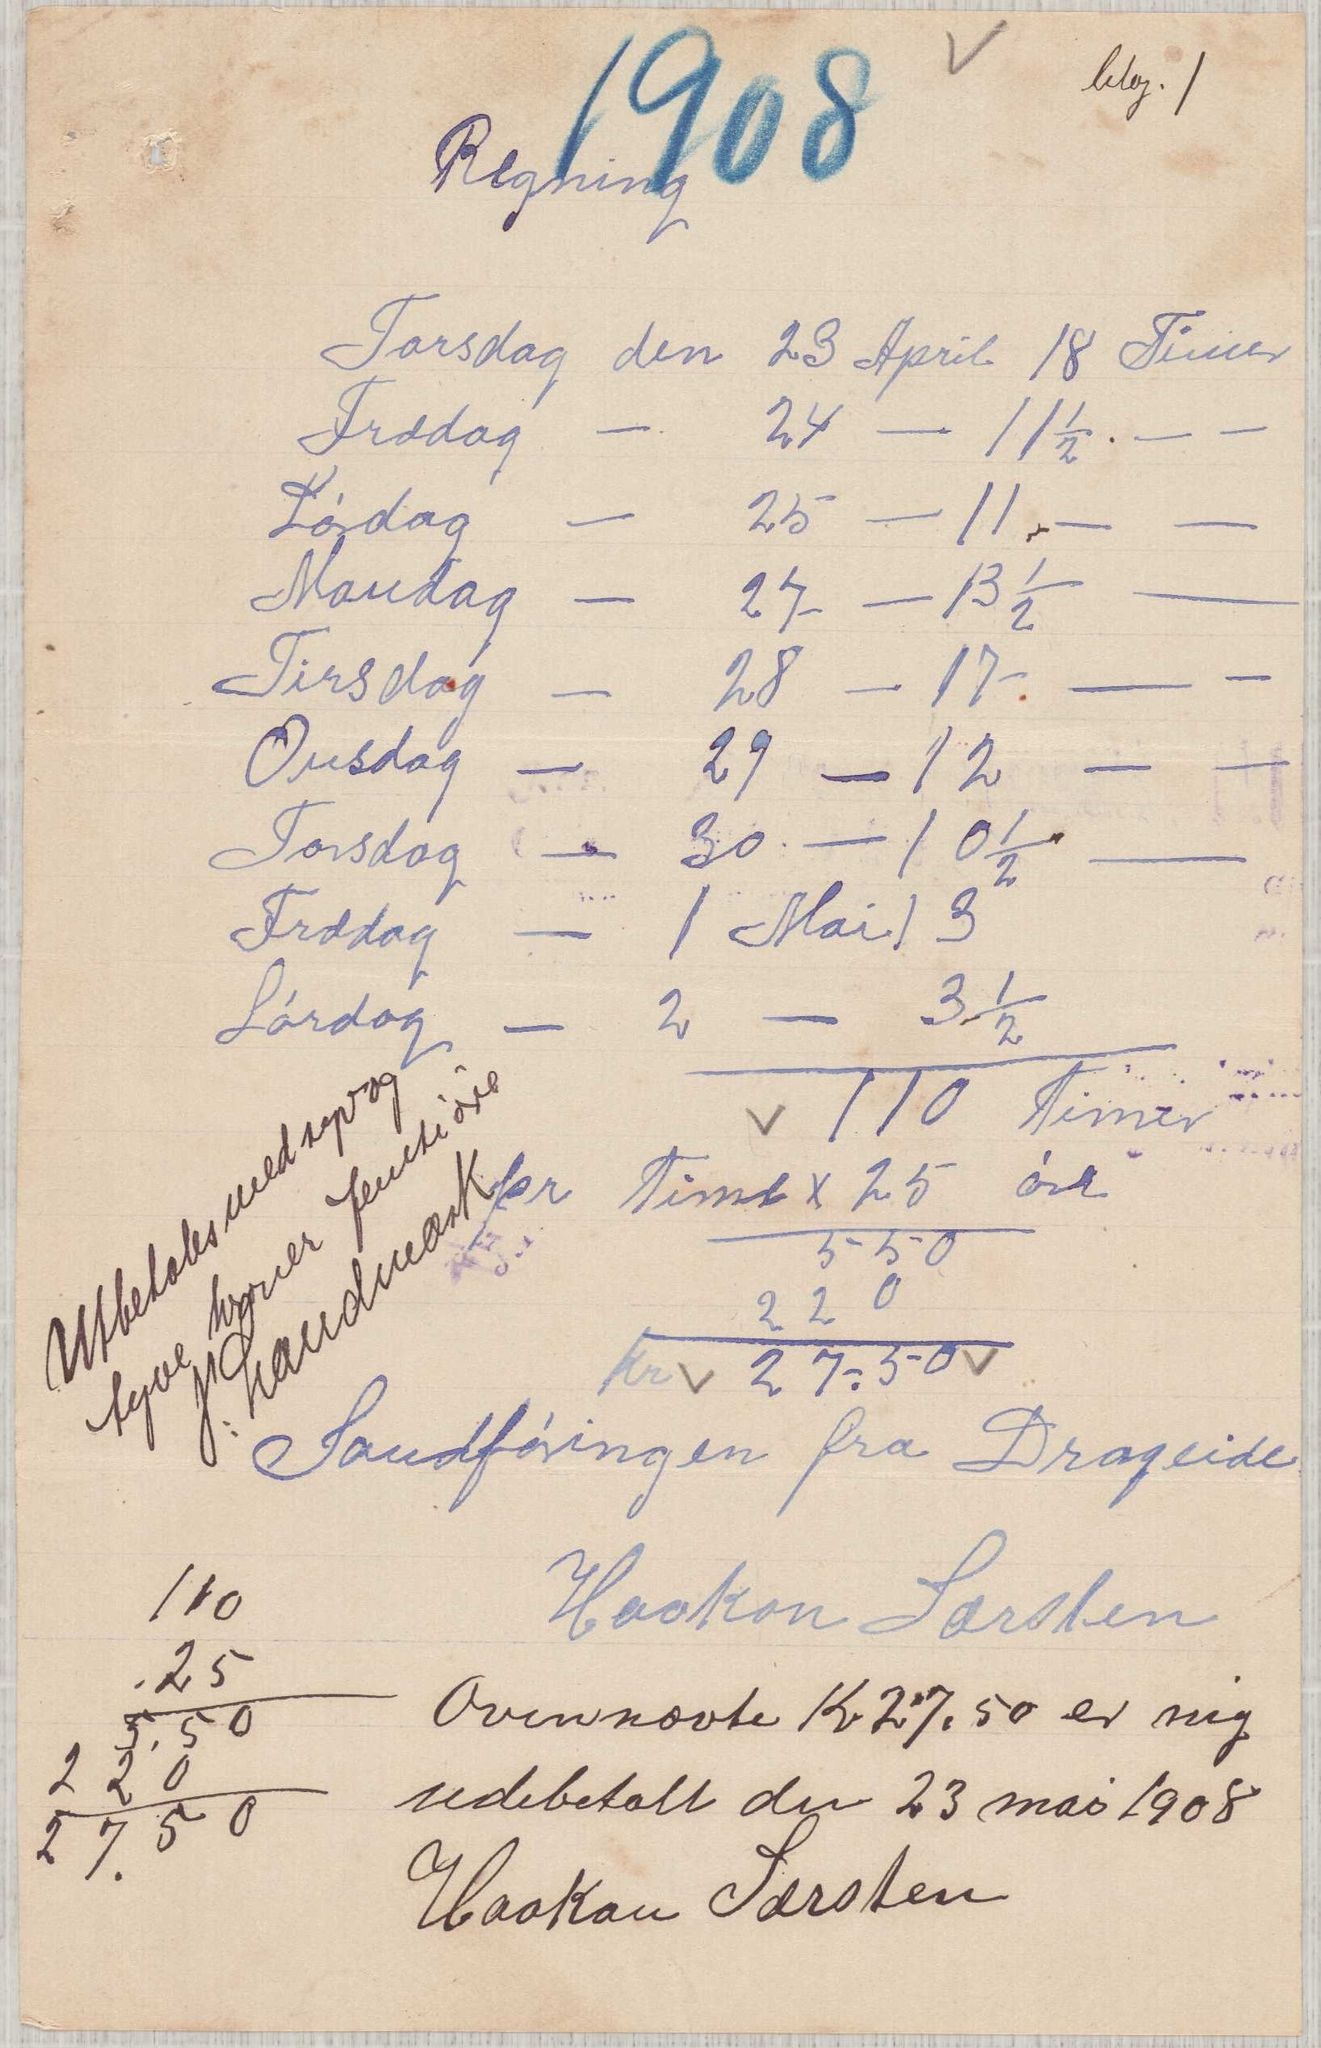 1908
bilag. 1
Regning
Torsdag den 23 April 18 Timer
Frædag — 24 — 11 1/2 . — —
Lördag — 25 — 11 . — —
Mandag — 27 — 13 1/2 —
Tirsdag — 28 — 17 . — —
Onsdag — 29 — 12 — —
Torsdag — 30 — 10 1/2 —
Frædag — 1 Mai 13
Lördag — 2 — 3 1/2
110 Timer
pr Time x 25 öre
550
220
Kr 27.50
Utbetales med syv og
tyve kroner femti öre
J. Landmark
Sandföringen fra Drageide
Haakon Særsten
110
.25
5.50
220
27.50
Ovennævte Kr 27.50 er mig
udebetalt den 23 mai 1908
Haakon Særsten